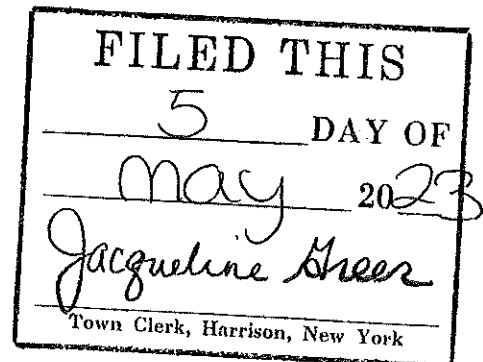 FILED THIS
5 DAY OF
May 2023
Jacqueline Greer
Town Clerk, Harrison, New York